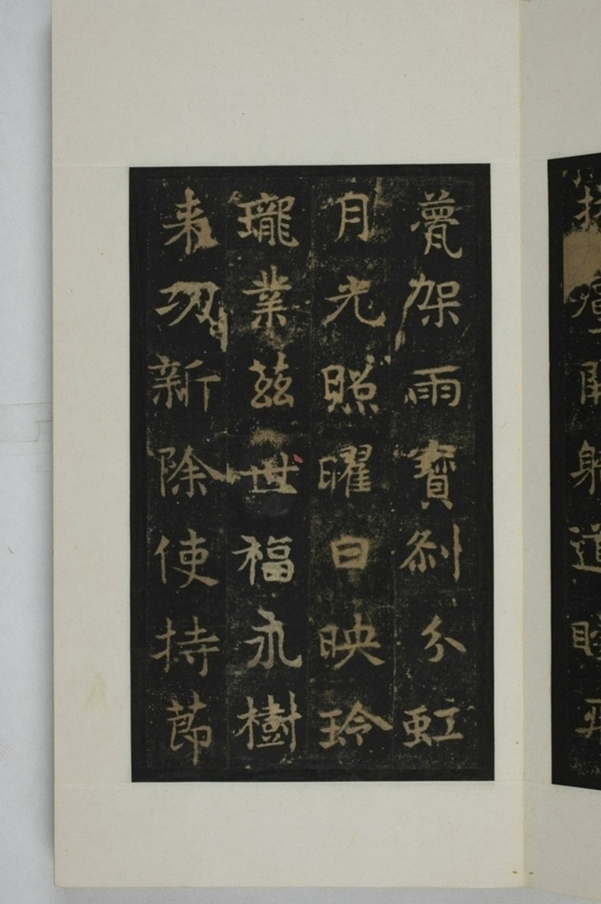 甍架雨寶刹分虹
月光照曜日映玲
瓏業茲世福永樹
来劫新除使持節